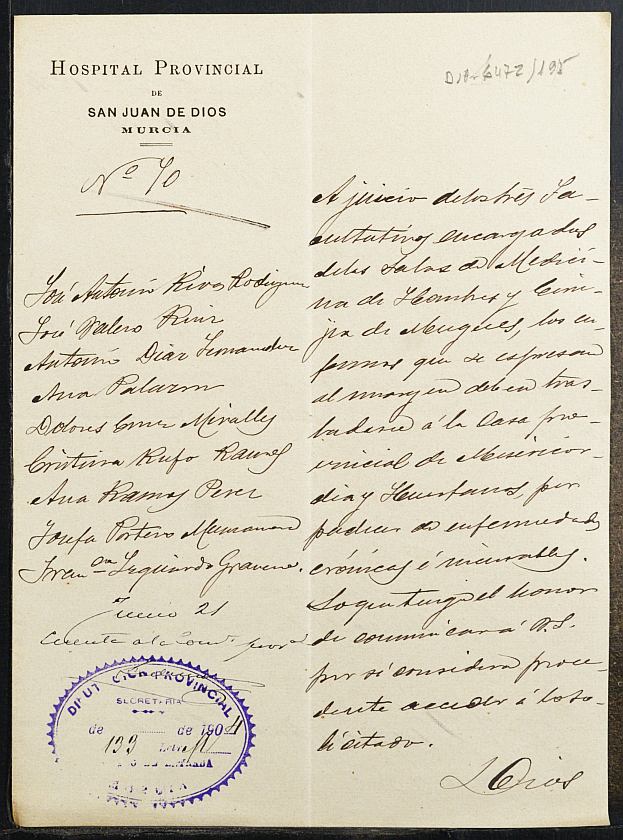 HOSPITAL PROVINCIAL
DE
SAN JUAN DE DIOS
MURCIA
Nº 70
José Antonio Rivas Rodriguez
José Valero Ruiz
Antonio Diaz Fernandez
Ana Palazon
Dolores Cruz Miralles
Cristina Rufo Ramos
Ana Ramos Perez
Josefa Portero Manzanera
Franca Izquierdo
Junio 21
Cuenta a la Comn provl
DIPUTACION PROVINCIAL
SECRETARIA
de de 1904
133
ENTRADA
MURCIA
A juicio de los trés Fa-
cultativos encargados
de las Salas de Medici-
na de Hombres y Ciru-
jia de Mugeres, los en-
fermos que se espresan
al margen deben tras-
ladarse á la Casa pro-
vincial de Misericor-
dia y Huerfanos, por
padecer de enfermedades
crónicas é incurables.
Lo que tengo el honor
de comunicar á V.S.
por si considera proce-
dente acceder á lo so-
licitado.
Dios